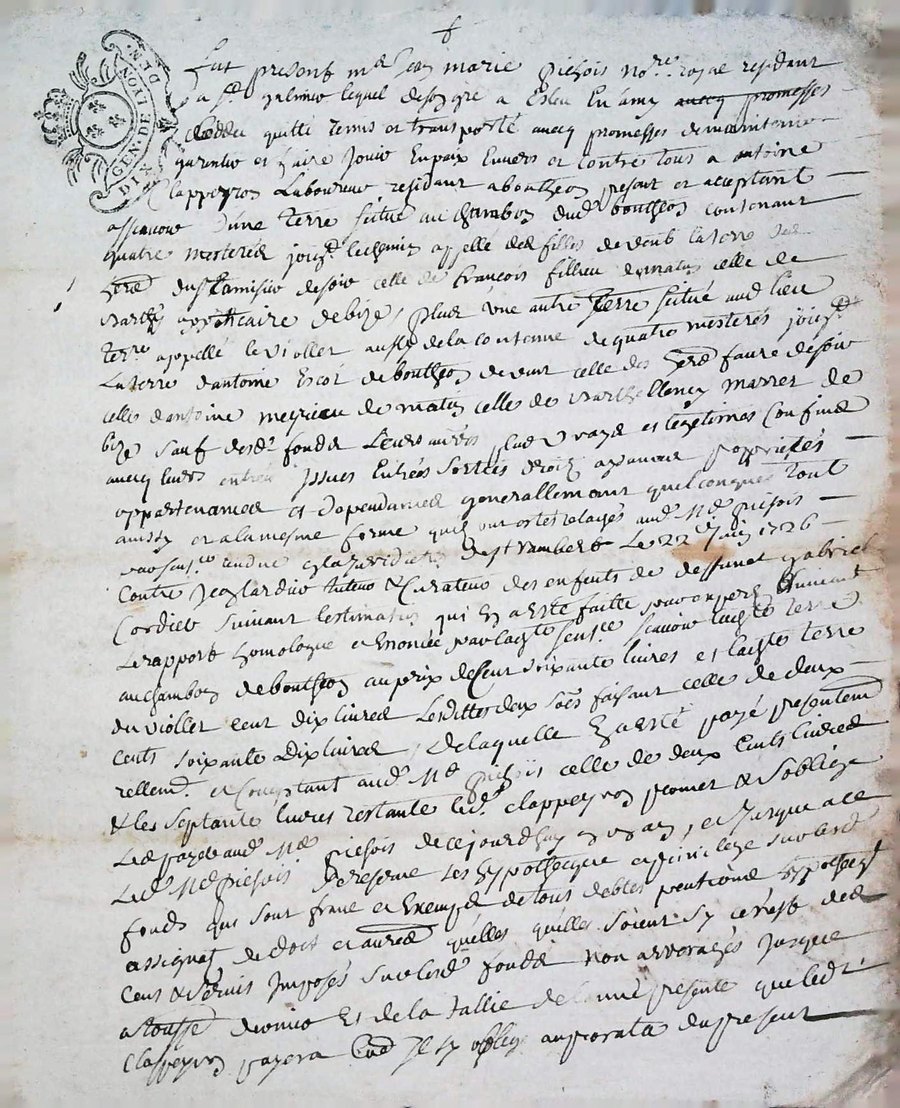 GEN. DE LION
DIX DEN.
Fut present me jean marie pichois nore royal residant
a st galmier lequel de son gre a Esleu En amy aveq promesses
ceddé quitté remis et transporté avecq promesses de maintenir
garentir et faire Jouir En paix Envers et contre tous a antoine
Clappeyron Laboureur residant a boutheon present et acceptant
assavoir d'une terre scitué au Chambon dud boutheon contenant
quatre mesterés joigt le chemin appellé des filles de vent la terre des
hers du st tamisier de soir celle de françois fillieu de matin celle de
appoticaire de bize, plus une autre terre scitué aud lieu
terre appellé le viollet aussy de la contenue de quatre mesterés joigt
La terre d'antoine Escot de boutheon de vent celle des hers faure de soir
celle d'antoine de matin celle de Barthellemy marret de
bize sauf desd fonds Leurs autres plus vrays et legitimes Confins
avecq leurs entrées Issues Entrées Sorties droits proprietés
appartenances et dependances generallement quelconques Tout
ainsy et a la mesme forme qu'ils ont estes relachés aud Me pichois
par sensce rendue en la juridiction de st rambert Le 22 juin 1726
Contre jean lardier tuteur & Curateur des enfents de deffunct gabriel
Cordier suivant l'estimation qui En a Esté faitte par expers suivant
Le rapport homologué et Enoncée par laditte sensce scavoir laditte terre
au chambon de boutheon au prix de Cent soixante livres et laditte terre
du viollet cent dix livres Lesdittes deux soes faisant celle de deux
cents soixante Dix livres, de laquelle En a esté payé presentemt
rellemt et Comptant aud Me pichois celle de deux Cents livres
& les septante livres restante led Clappeyron promet & s'oblige
Les payer aud Me pichois de ce jourd'huy En un an, et Jusque a ce
Led Me pichois se reserve ses hypotecque et privilege sur lesd
fonds qui sont franc et Exempts de tous debtes pentions hypotecqs
assignat de dot et autres quelles quelles soient sy ce n'est des
Cens & servis Imposés sur lesd fonds non arreragés jusque
a toussts dernier Et de la tallie de lanné presente que led
Clappeyron payera au prorata du present